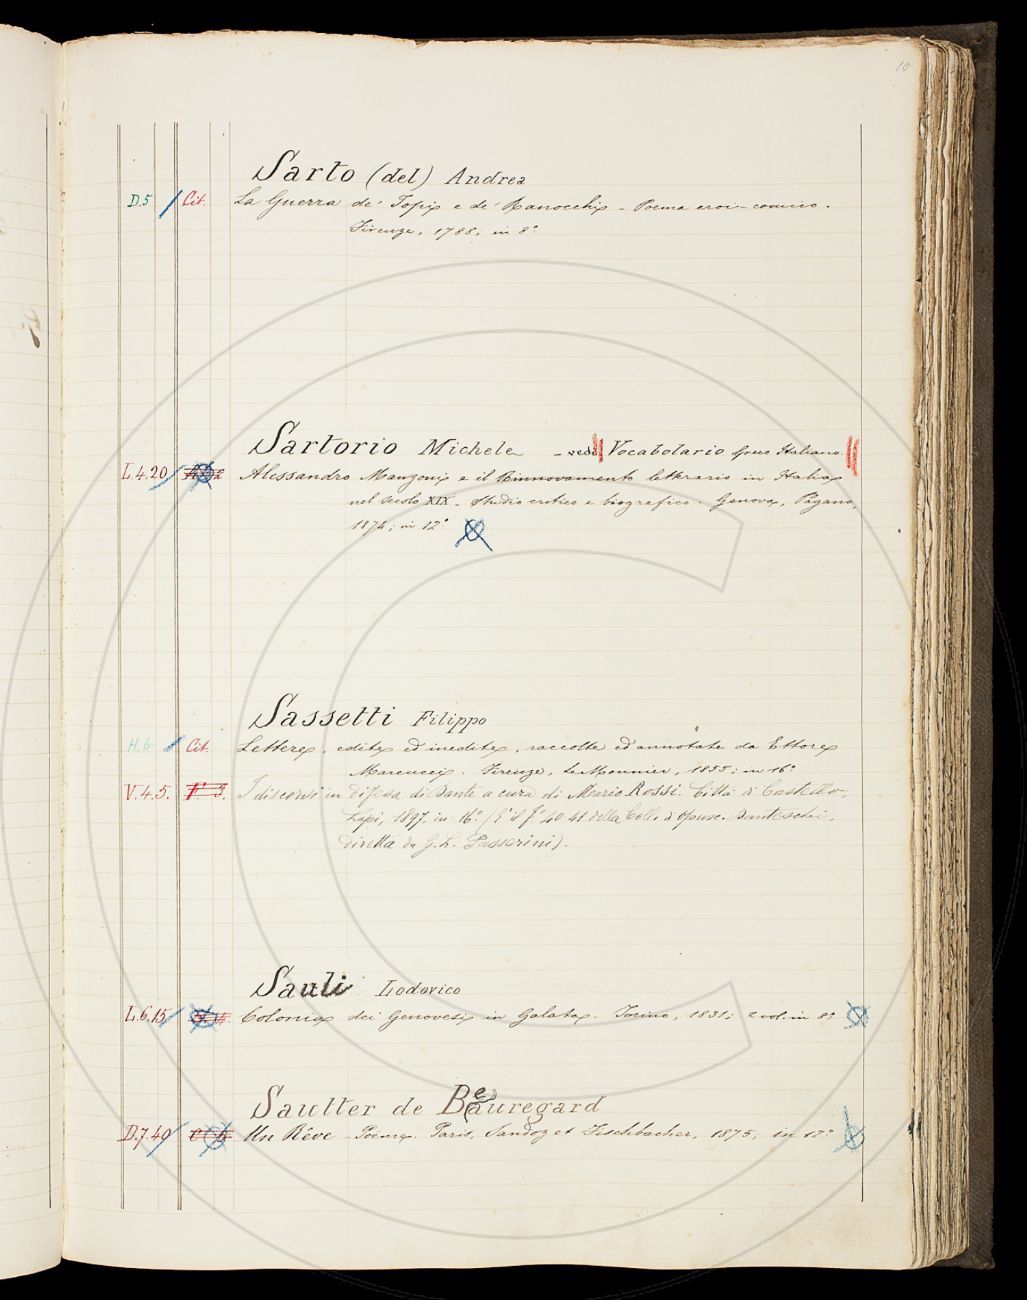 10
Sarto (del) Andrea
D.5 Cit. La Guerra de' Topi e de' Ranocchi - Poema eroi-comico.
Firenze, 1788; in 8°
Sartorio Michele - vedi Vocabolario Italiano.
L.4.20 Alessandro Manzoni e il Rinnovamento letterario in Italia
nel secolo XIX - Studio critico e biografico. Genova, Pagano,
1874; in 12°
Sassetti Filippo
H.6. Cit. Lettere, edite ed inedite, raccolte ed annotate da Ettore
Marcucci. Firenze, Le Monnier, 1855; in 16°
V.4.5. I discorsi in difesa di Dante a cura di Mario Rossi. Città di Castello,
Lapi, 1897. in 16° (È il f° 40 41 della Coll. d'opusc. Danteschi,
diretta da G. L. Passerini).
Sauli Lodovico
L.6.15 Colonia dei Genovesi in Galata. Torino, 1831; 2 vol. in 8°
Sautter de Beauregard
D.7.49 Un Rêve - Poème. Paris, Sandoz et Fischbacher, 1875; in 12°